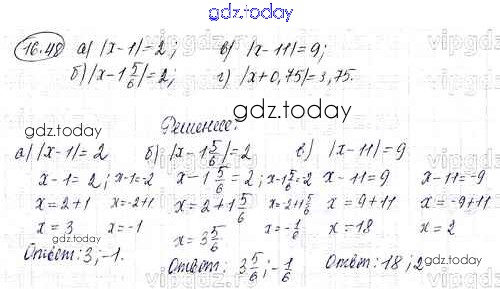 gdz.today
16.48 а) |x-1|=2; в) |x-11|=9;
б) |x-1 5/6|=2; г) |x+0,75|=3,75.
gdz.today
Решение:
gdz.today
а) |x-1|=2 б) |x-1 5/6|=2 в) |x-11|=9
x-1=2; x-1=-2 x-1 5/6=2; x-1 5/6=-2 x-11=9 x-11=-9
x=2+1 x=-2+1 x=2+1 5/6 x=-2+1 5/6 x=9+11 x=-9+11
x=3 x=-1 x=3 5/6 x=-1/6 x=18 x=2
gdz.today
Ответ: 3; -1. Ответ: 3 5/6; -1/6 Ответ: 18; 2
gdz.today